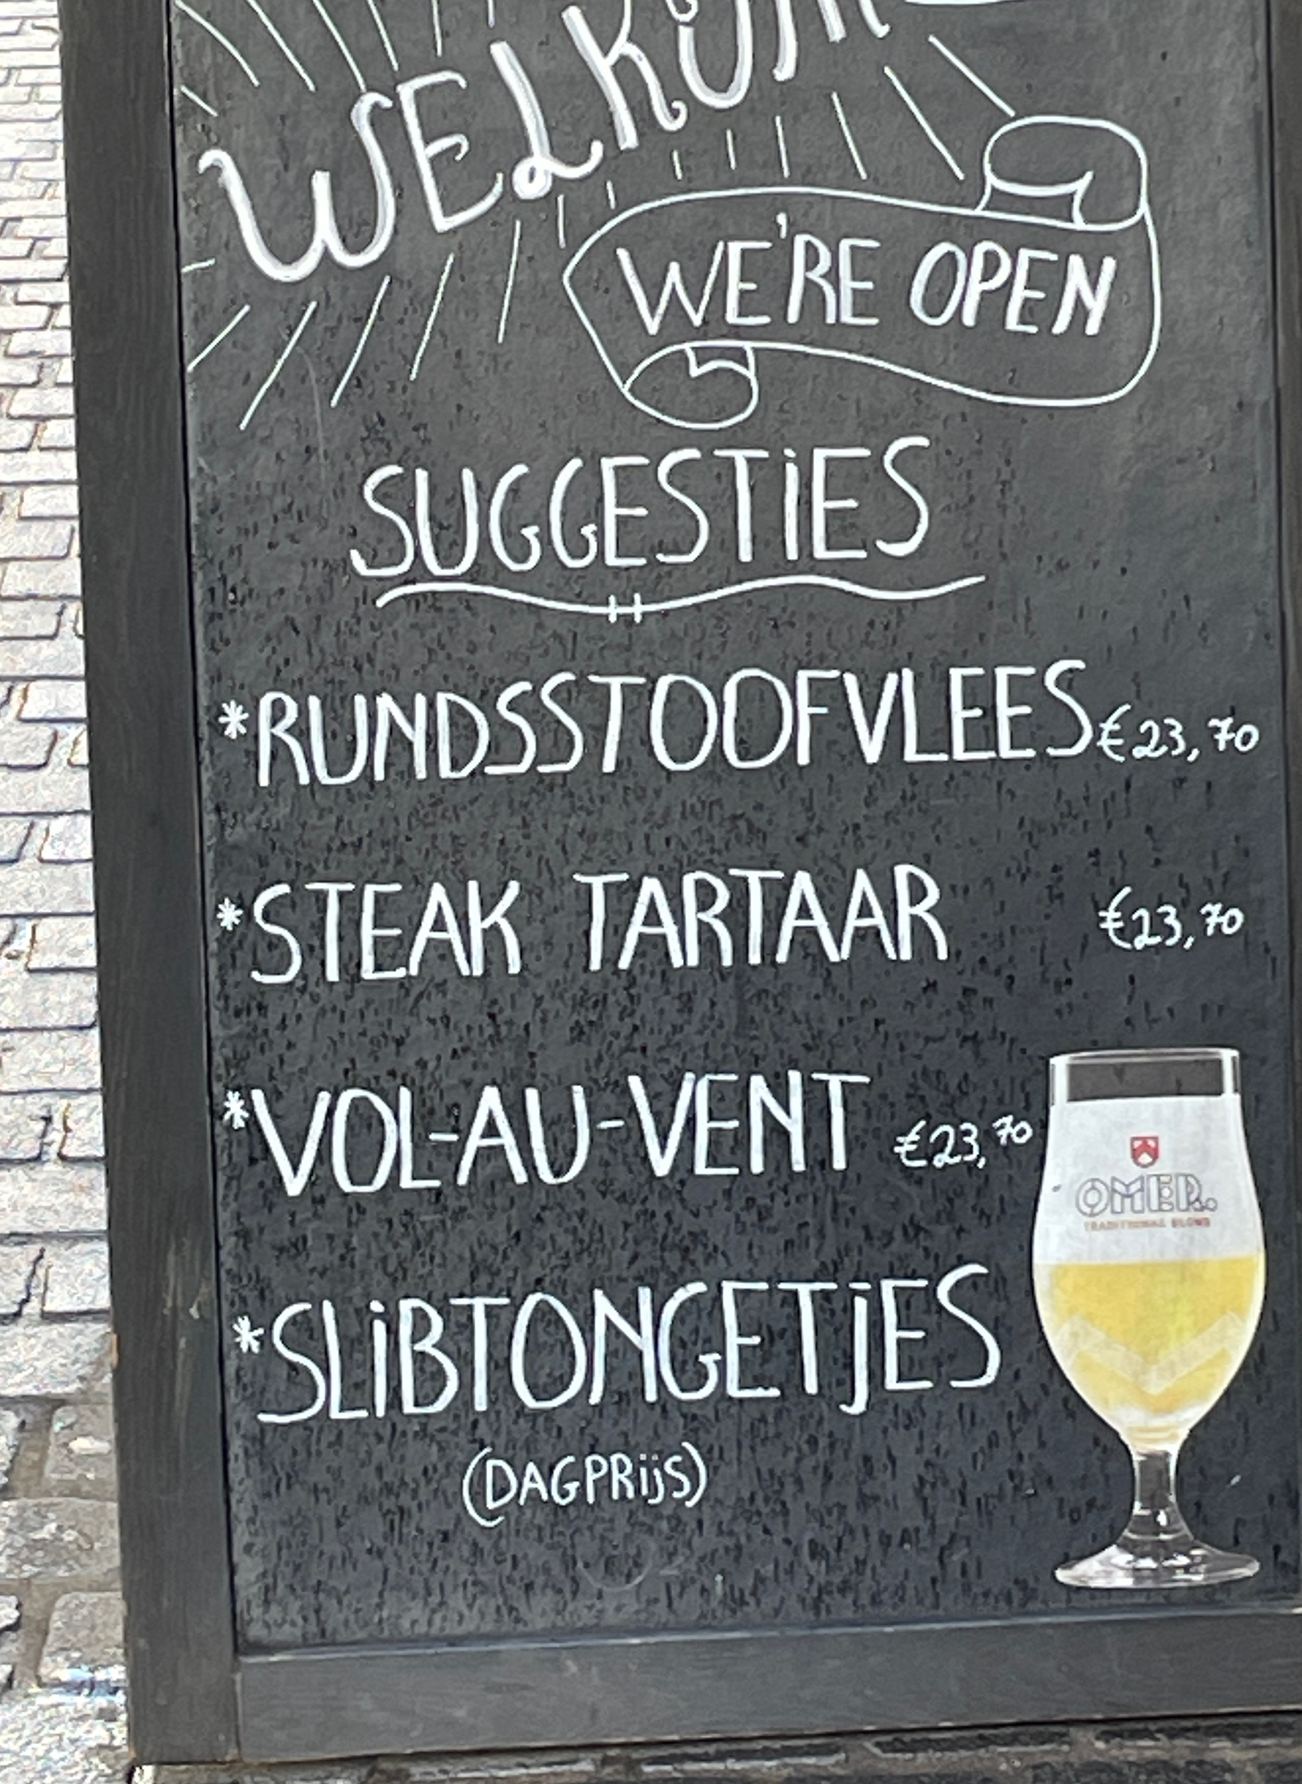 WELKOM
WE'RE OPEN
SUGGESTIES
*RUNDSSTOOFVLEES €23,70
*STEAK TARTAAR €23,70
*VOL-AU-VENT €23,70
OMER.
TRADITIONAL BLOND
*SLiBTONGETjES
(DAGPRijS)